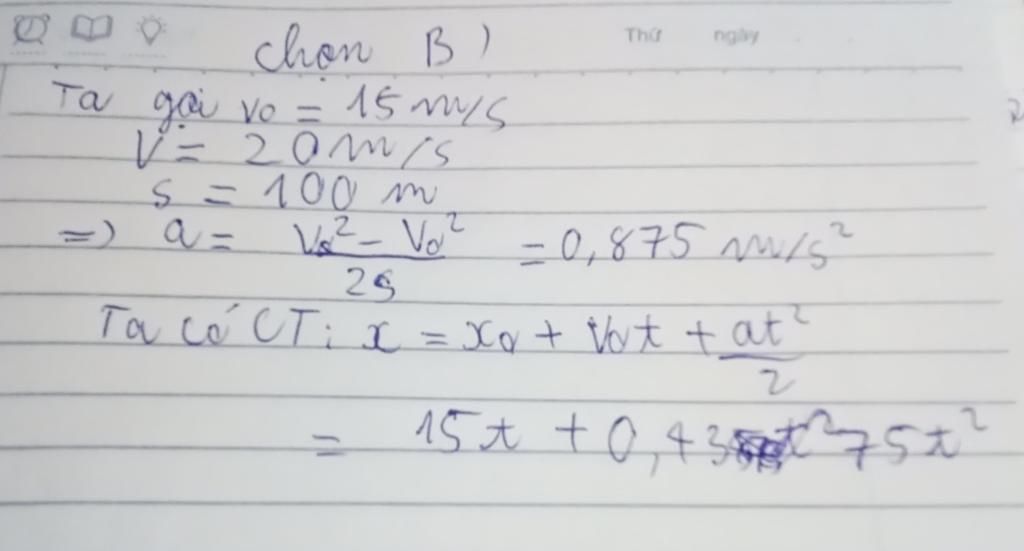 Thứ ngày
Chọn B)
Ta gọi v₀ = 15 m/s
V = 20 m/s
s = 100 m
=> a = (V² - V₀²)/2S = 0,875 m/s²
Ta có CT: x = x₀ + V₀t + at²/2
= 15t + 0,4375t²